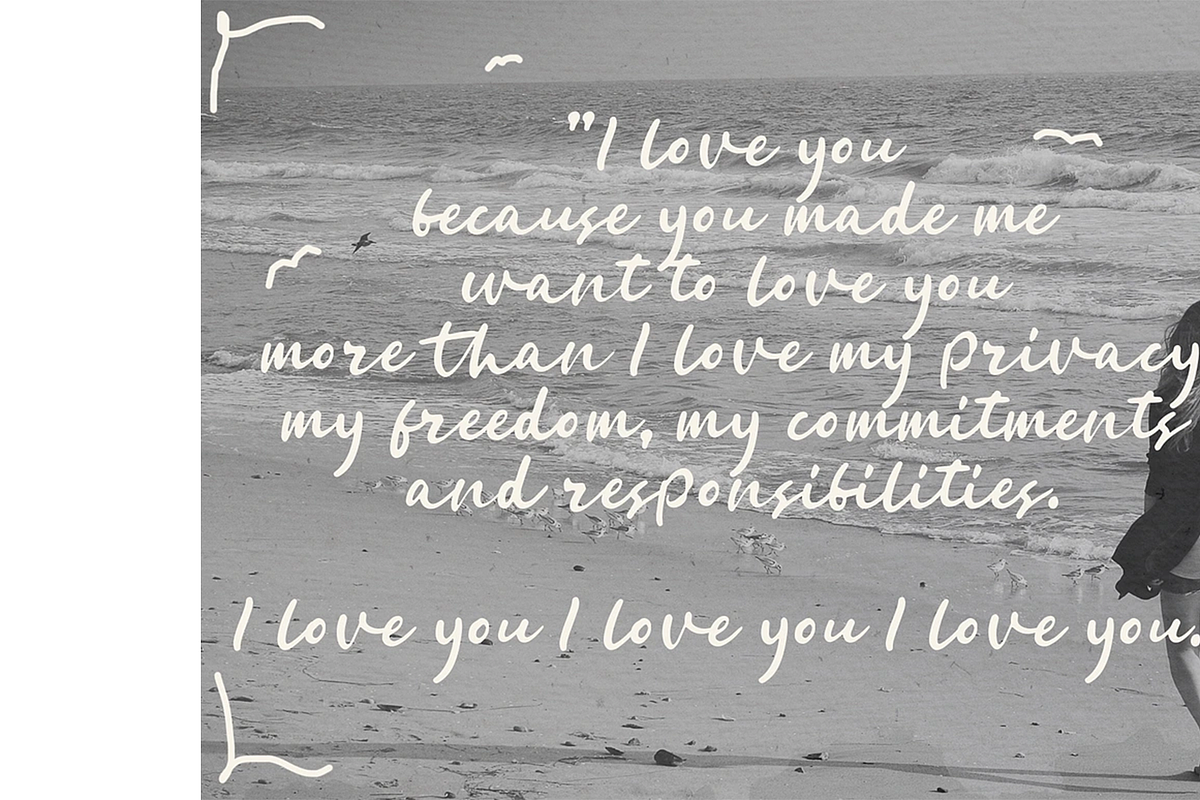 "I love you
because you made me
want to love you
more than I love my privacy
my freedom, my commitments
and responsibilities.
I love you I love you I love you.